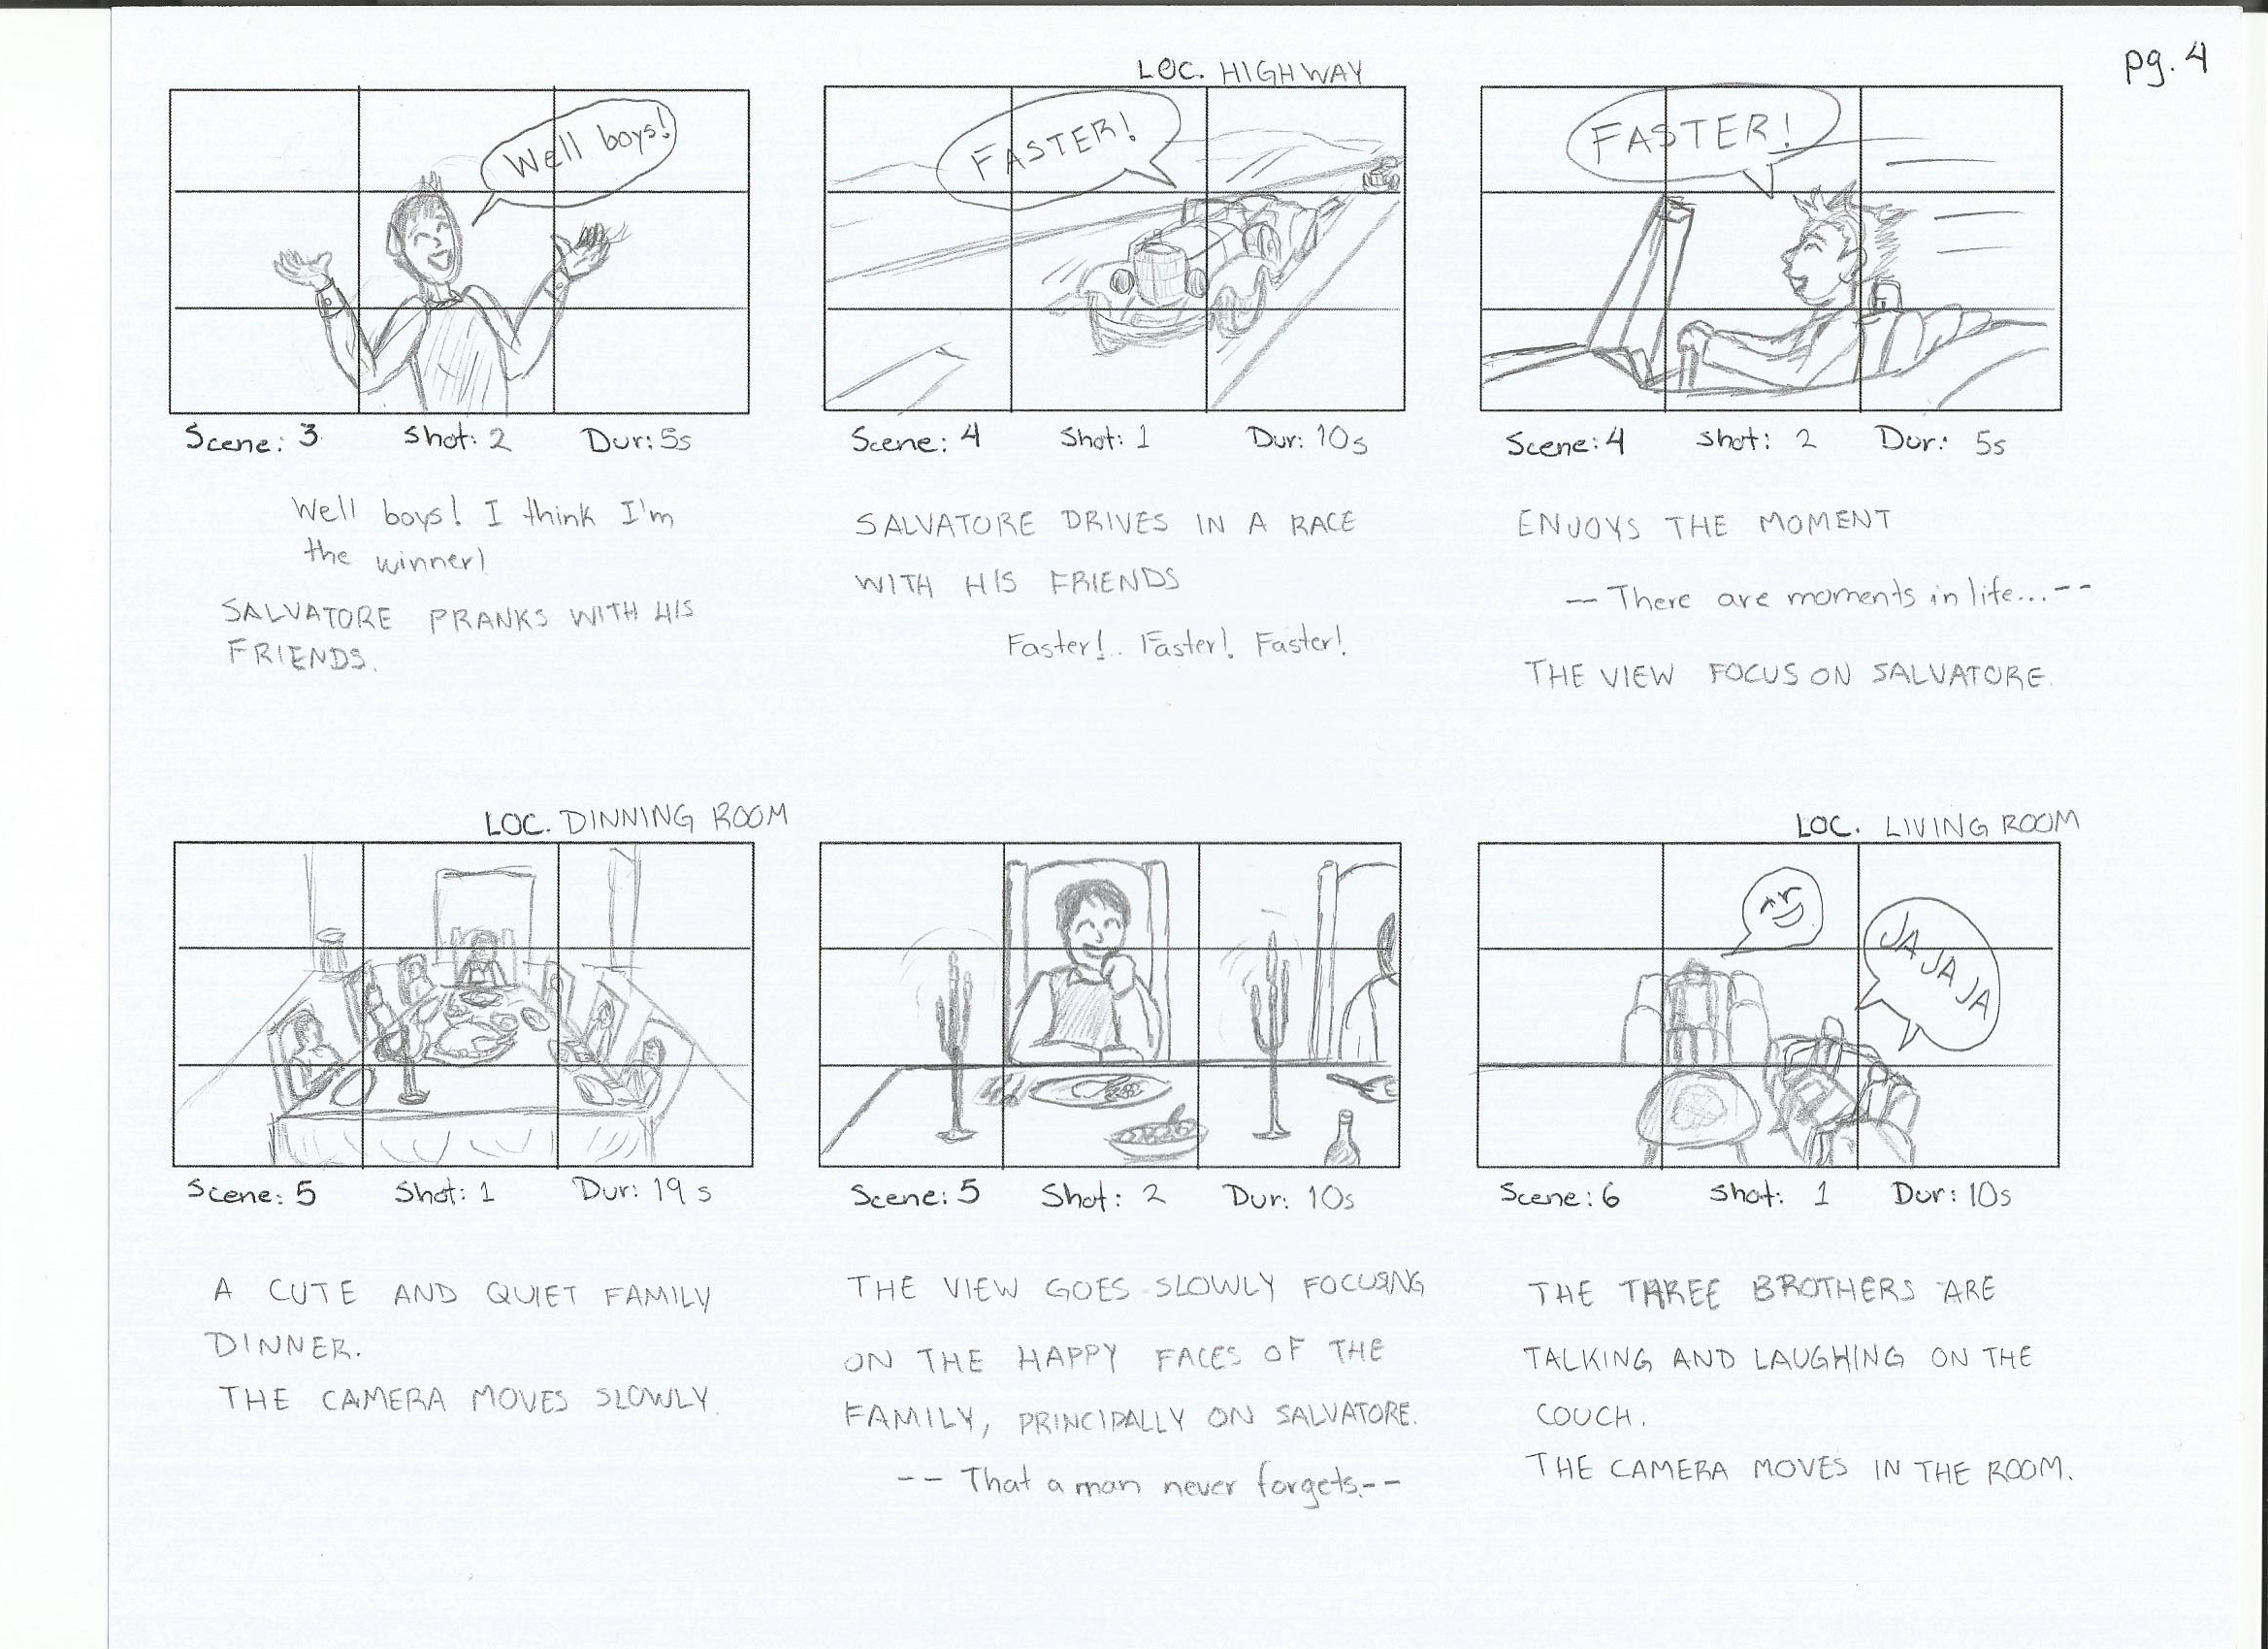 pg. 4
Well boys!
Scene: 3 Shot: 2 Dur: 5s
Well boys! I think I'm
the winner!
SALVATORE PRANKS WITH HIS
FRIENDS.
LOC. HIGHWAY
FASTER!
Scene: 4 Shot: 1 Dur: 10s
SALVATORE DRIVES IN A RACE
WITH HIS FRIENDS
Faster!.. Faster! Faster!
FASTER!
Scene: 4 Shot: 2 Dur: 5s
ENJOYS THE MOMENT
-- There are moments in life...--
THE VIEW FOCUS ON SALVATORE.
LOC. DINNING ROOM
Scene: 5 Shot: 1 Dur: 19s
A CUTE AND QUIET FAMILY
DINNER.
THE CAMERA MOVES SLOWLY.
Scene: 5 Shot: 2 Dur: 10s
THE VIEW GOES SLOWLY FOCUSING
ON THE HAPPY FACES OF THE
FAMILY, PRINCIPALLY ON SALVATORE.
-- That a man never forgets.--
LOC. LIVING ROOM
JA JA JA
Scene: 6 Shot: 1 Dur: 10s
THE THREE BROTHERS ARE
TALKING AND LAUGHING ON THE
COUCH.
THE CAMERA MOVES IN THE ROOM.